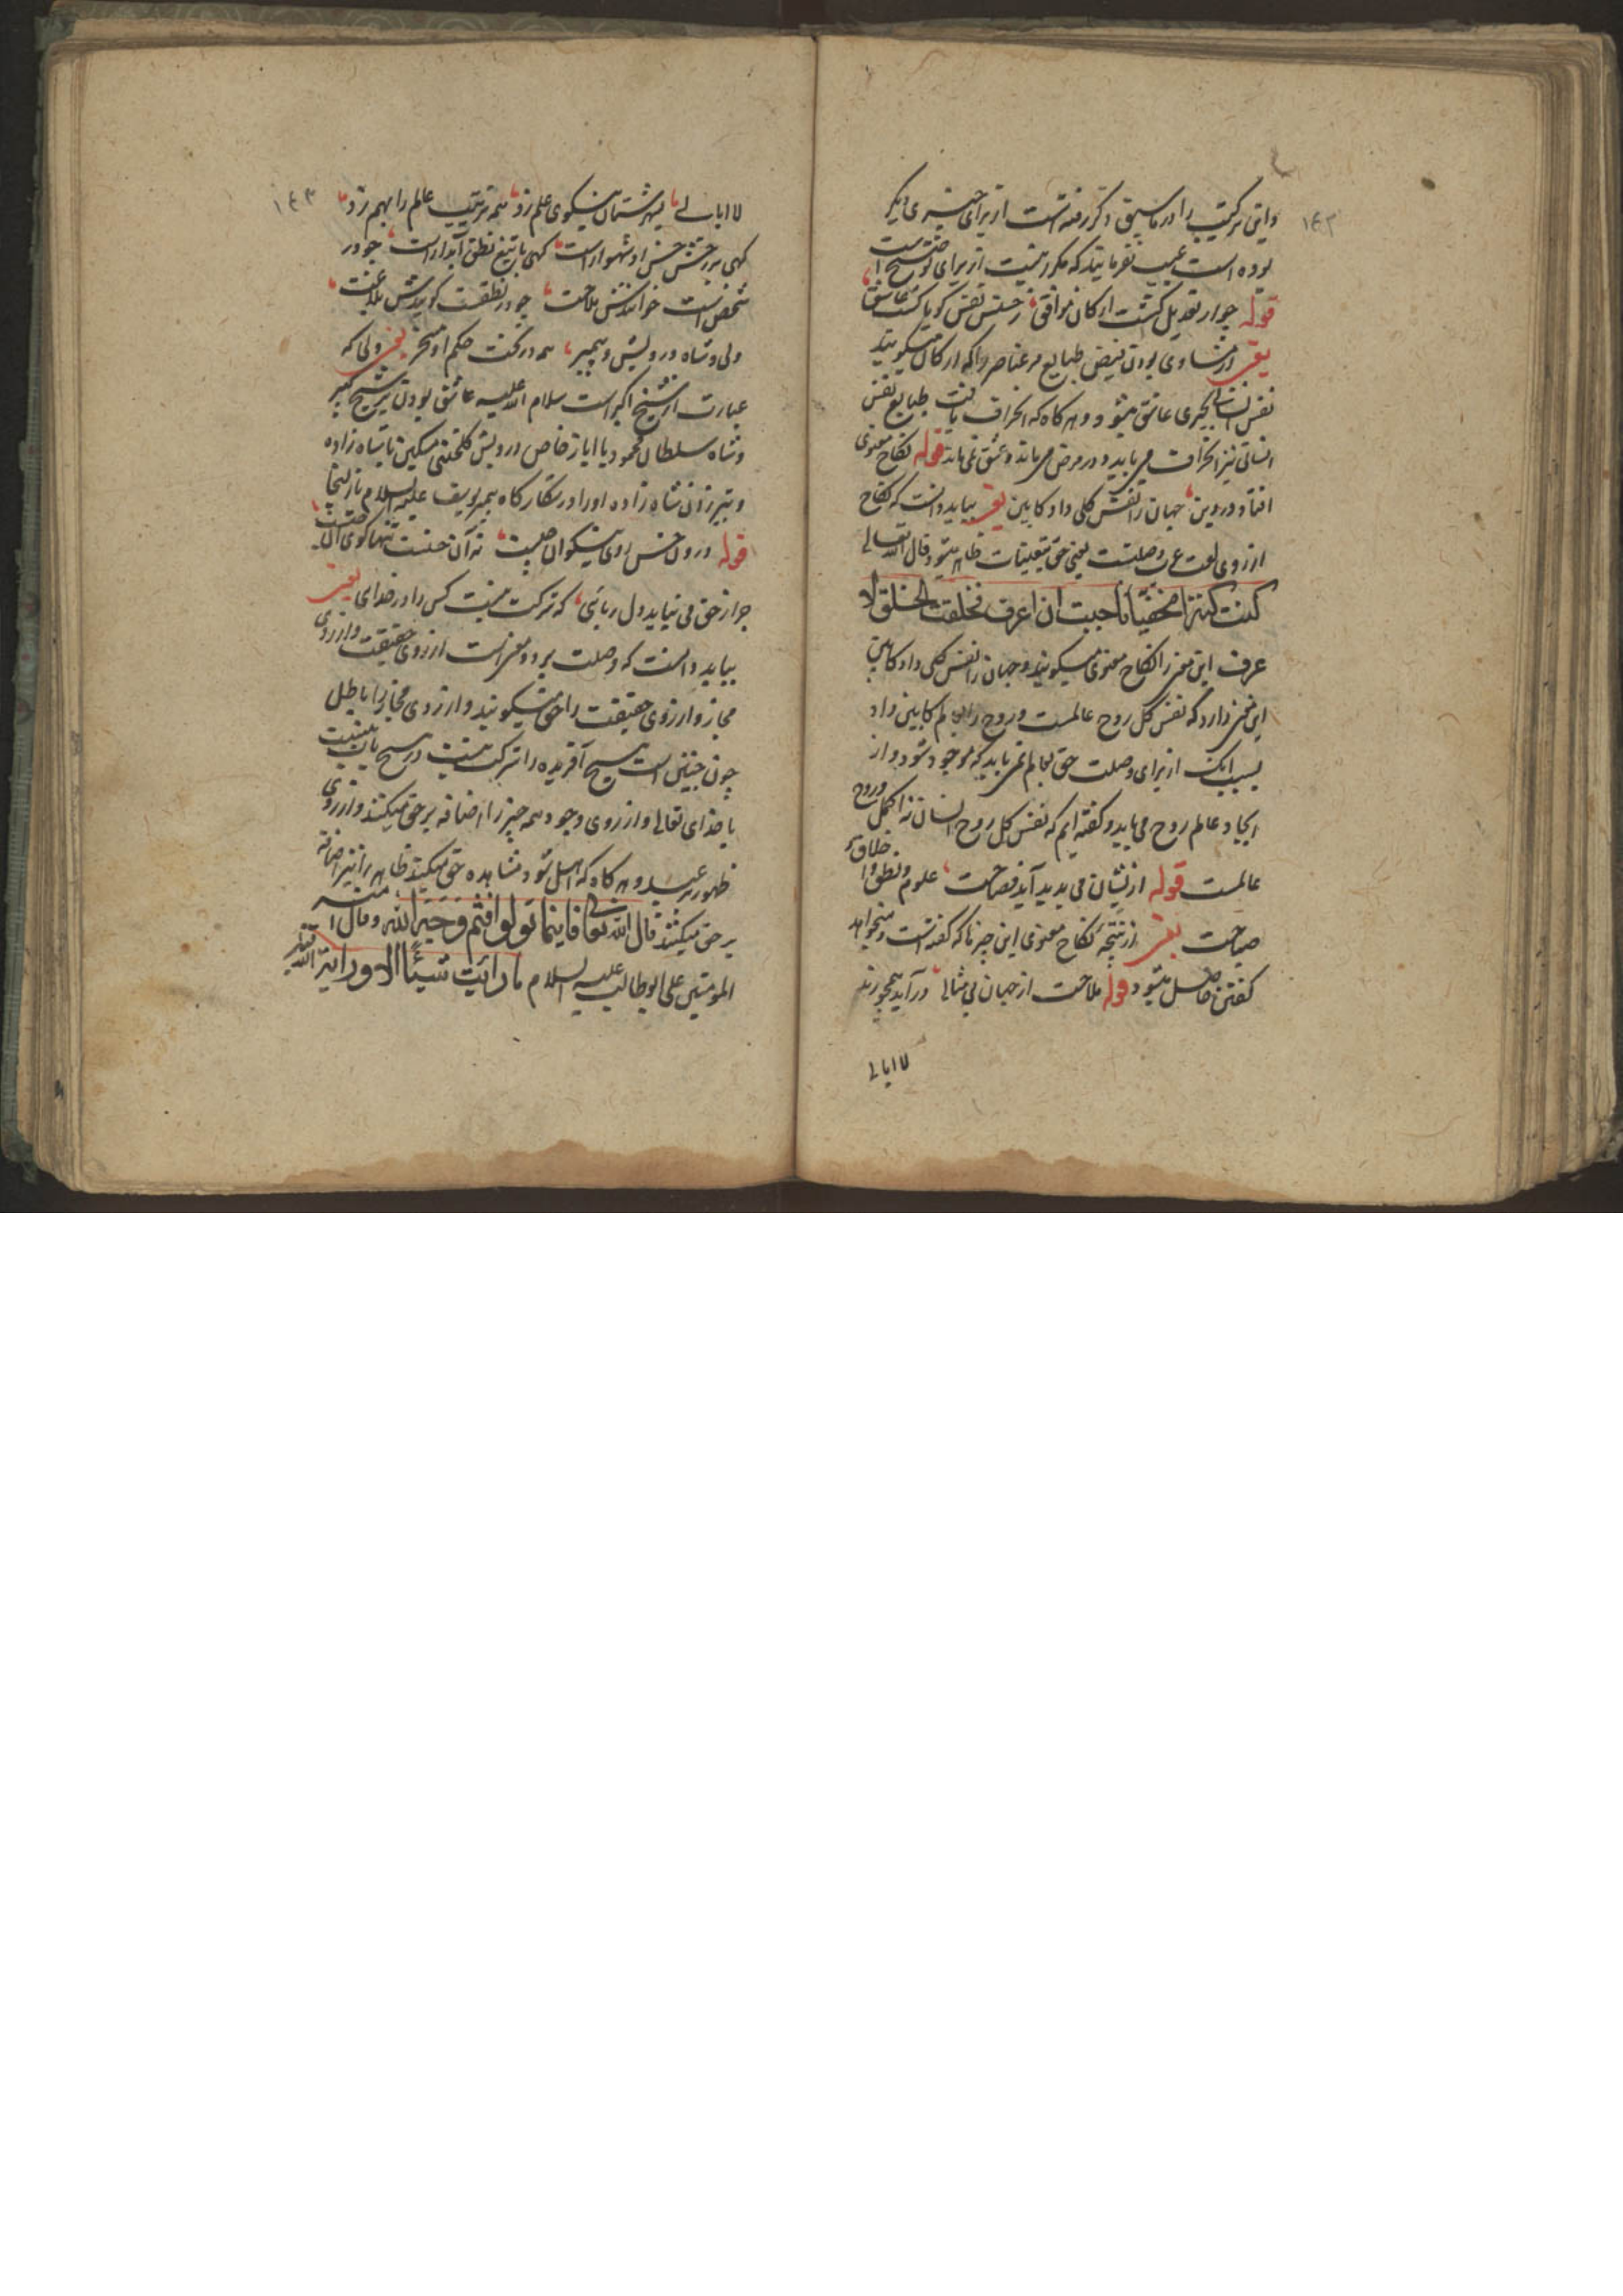 ۱۴۲
و این ترکیب را در ماسبق ذکر رفته است از برای چیزی دیگر
بوده است عیب نفرمایند که مکرر نیست از برای توضیح است
قوله چو از تعدیل گشت ارکان موافق ز حسنش نفس گویا گشت عاشق
یعنی از مساوی بودن فیض طبایع مر عناصر را که ارکان میگویند
نفس انسانی بچیزی عاشق میشود و هرگاه که انحراف یافت طبایع نفس
انسانی نیز انحراف می یابد و در مرض می ماند و عشق نمی ماند قوله نکاح معنوی
افتاد در دین جهان را نفس کلی داد کابین یعنی بباید دانست که نکاح
از روی لغت عرب وصلتست یعنی حق بتعینات ظاهر میشود قال الله تعالی
کنت کنزا مخفیا فاحببت ان اعرف فخلقت الخلق لا
عرف این معنی را نکاح معنوی میگویند و جهان را نفس کلی داد کابین
این معنی دارد که نفس کل روح عالمست و روح را بعالم کابین داد
بسبب آنک از برای وصلت حق بعالم می باید که موجود شود و از
ایجاد عالم روح می باید و گفته ایم که نفس کل روح انسان نه اکمل و روح
عالمست قوله ازیشان می پدید آید فصاحت علوم و نطق و اخلاق و
صباحت یعنی از نتیجه نکاح معنوی این چیزها که گفته است و میخواهد
گفتن حاصل میشود قوله ملاحت از جهان بی مثالی درآید همچو رند
لا ابالی
۱۴۳
لا ابالی بشهرستان نیکویی علم زد همه ترتیب عالم را بهم زد
گهی بر رخش حسن او شهسوار است گهی با تیغ نطق آبدار است چو در
شخص است خوانندش ملاحت چو در نطقست گویندش بلاغت
ولی و شاه و درویش و پیمبر همه در تحت حکم او مسخر یعنی ولی که
عبارت از شیخ اکبر است سلام الله علیه عاشق بودن شیخ کبیر
و شاه سلطان محمود با ایاز خاص درویش گلخنی مسکین با شاه زاده
و تیر زدن شاه زاده او را در شکارگاه پیمبر یوسف علیه السلام با زلیخا
قوله درون حسن روی نیکوان چیست نه آن حسنست تنها گوی آن چیست
جز از حق می نیاید دل ربائی که شرکت نیست کس را در خدای یعنی
بباید دانست که وصلت بر دو معنی است از روی حقیقت و از روی
مجاز و از روی حقیقت را حق میگویند و از روی مجاز را باطل
چون چنین است هیچ آفریده را شرکت نیست در هیچ باب نیست
با خدای تعالی و از روی وجود همه چیز را اضافه بر حق میکنند و از روی
ظهور بر عبید و هرگاه که اهل شود مشاهده حق میکند ظاهر را نیز اضافه
بر حق میکنند قال الله تعالی فاینما تولوا فثم وجه الله و قال امیر
المومنین علی ابوطالب علیه السلام ما رائیت شیئا الا و رایت الله فیه